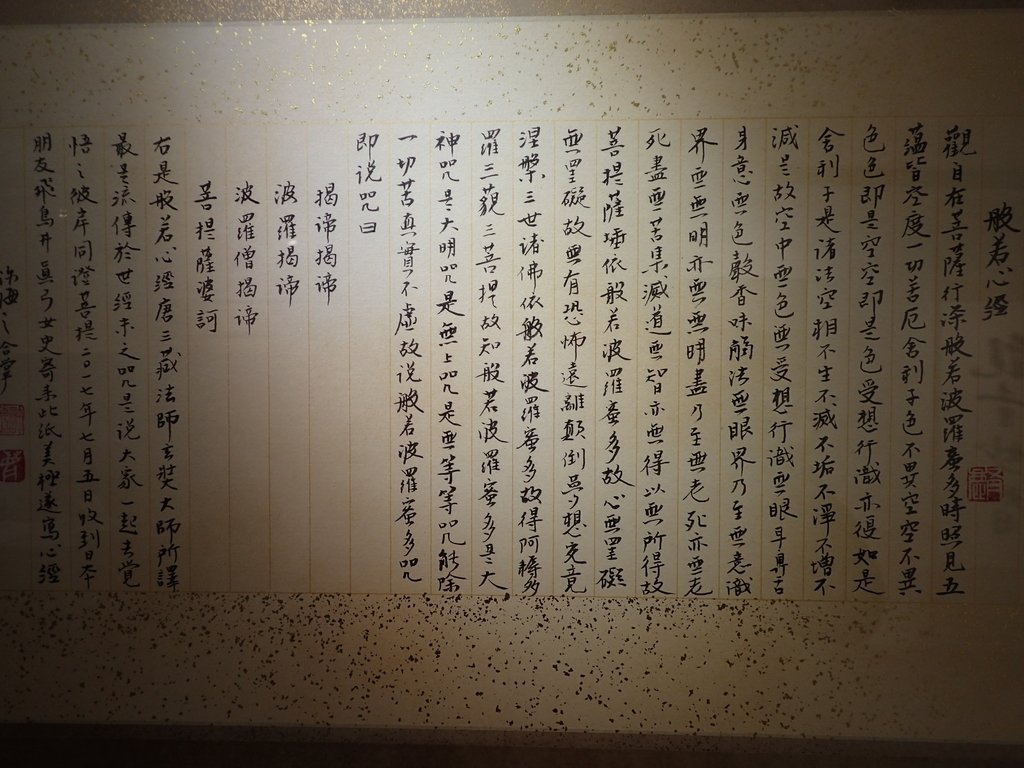 般若心經
觀自在菩薩行深般若波羅蜜多時照見五
蘊皆空度一切苦厄舍利子色不異空空不異
色色即是空空即是色受想行識亦復如是
舍利子是諸法空相不生不滅不垢不淨不增不
減是故空中無色無受想行識無眼耳鼻舌
身意無色聲香味觸法無眼界乃至無意識
界無無明亦無無明盡乃至無老死亦無老
死盡無苦集滅道無智亦無得以無所得故
菩提薩埵依般若波羅蜜多故心無罣礙
無罣礙故無有恐怖遠離顛倒夢想究竟
涅槃三世諸佛依般若波羅蜜多故得阿耨多
羅三藐三菩提故知般若波羅蜜多是大
神咒是大明咒是無上咒是無等等咒能除
一切苦真實不虛故说般若波羅蜜多咒
即说咒曰
揭諦揭諦
波羅揭諦
波羅僧揭諦
菩提薩婆訶
右是般若心經唐三藏法師玄奘大師所譯
最是流傳於世經末之咒是说大家一起去覺
悟之彼岸同證菩提二〇一七年七月五日收到日本
朋友飛鳥井真弓女史寄來此紙美極遂寫心經